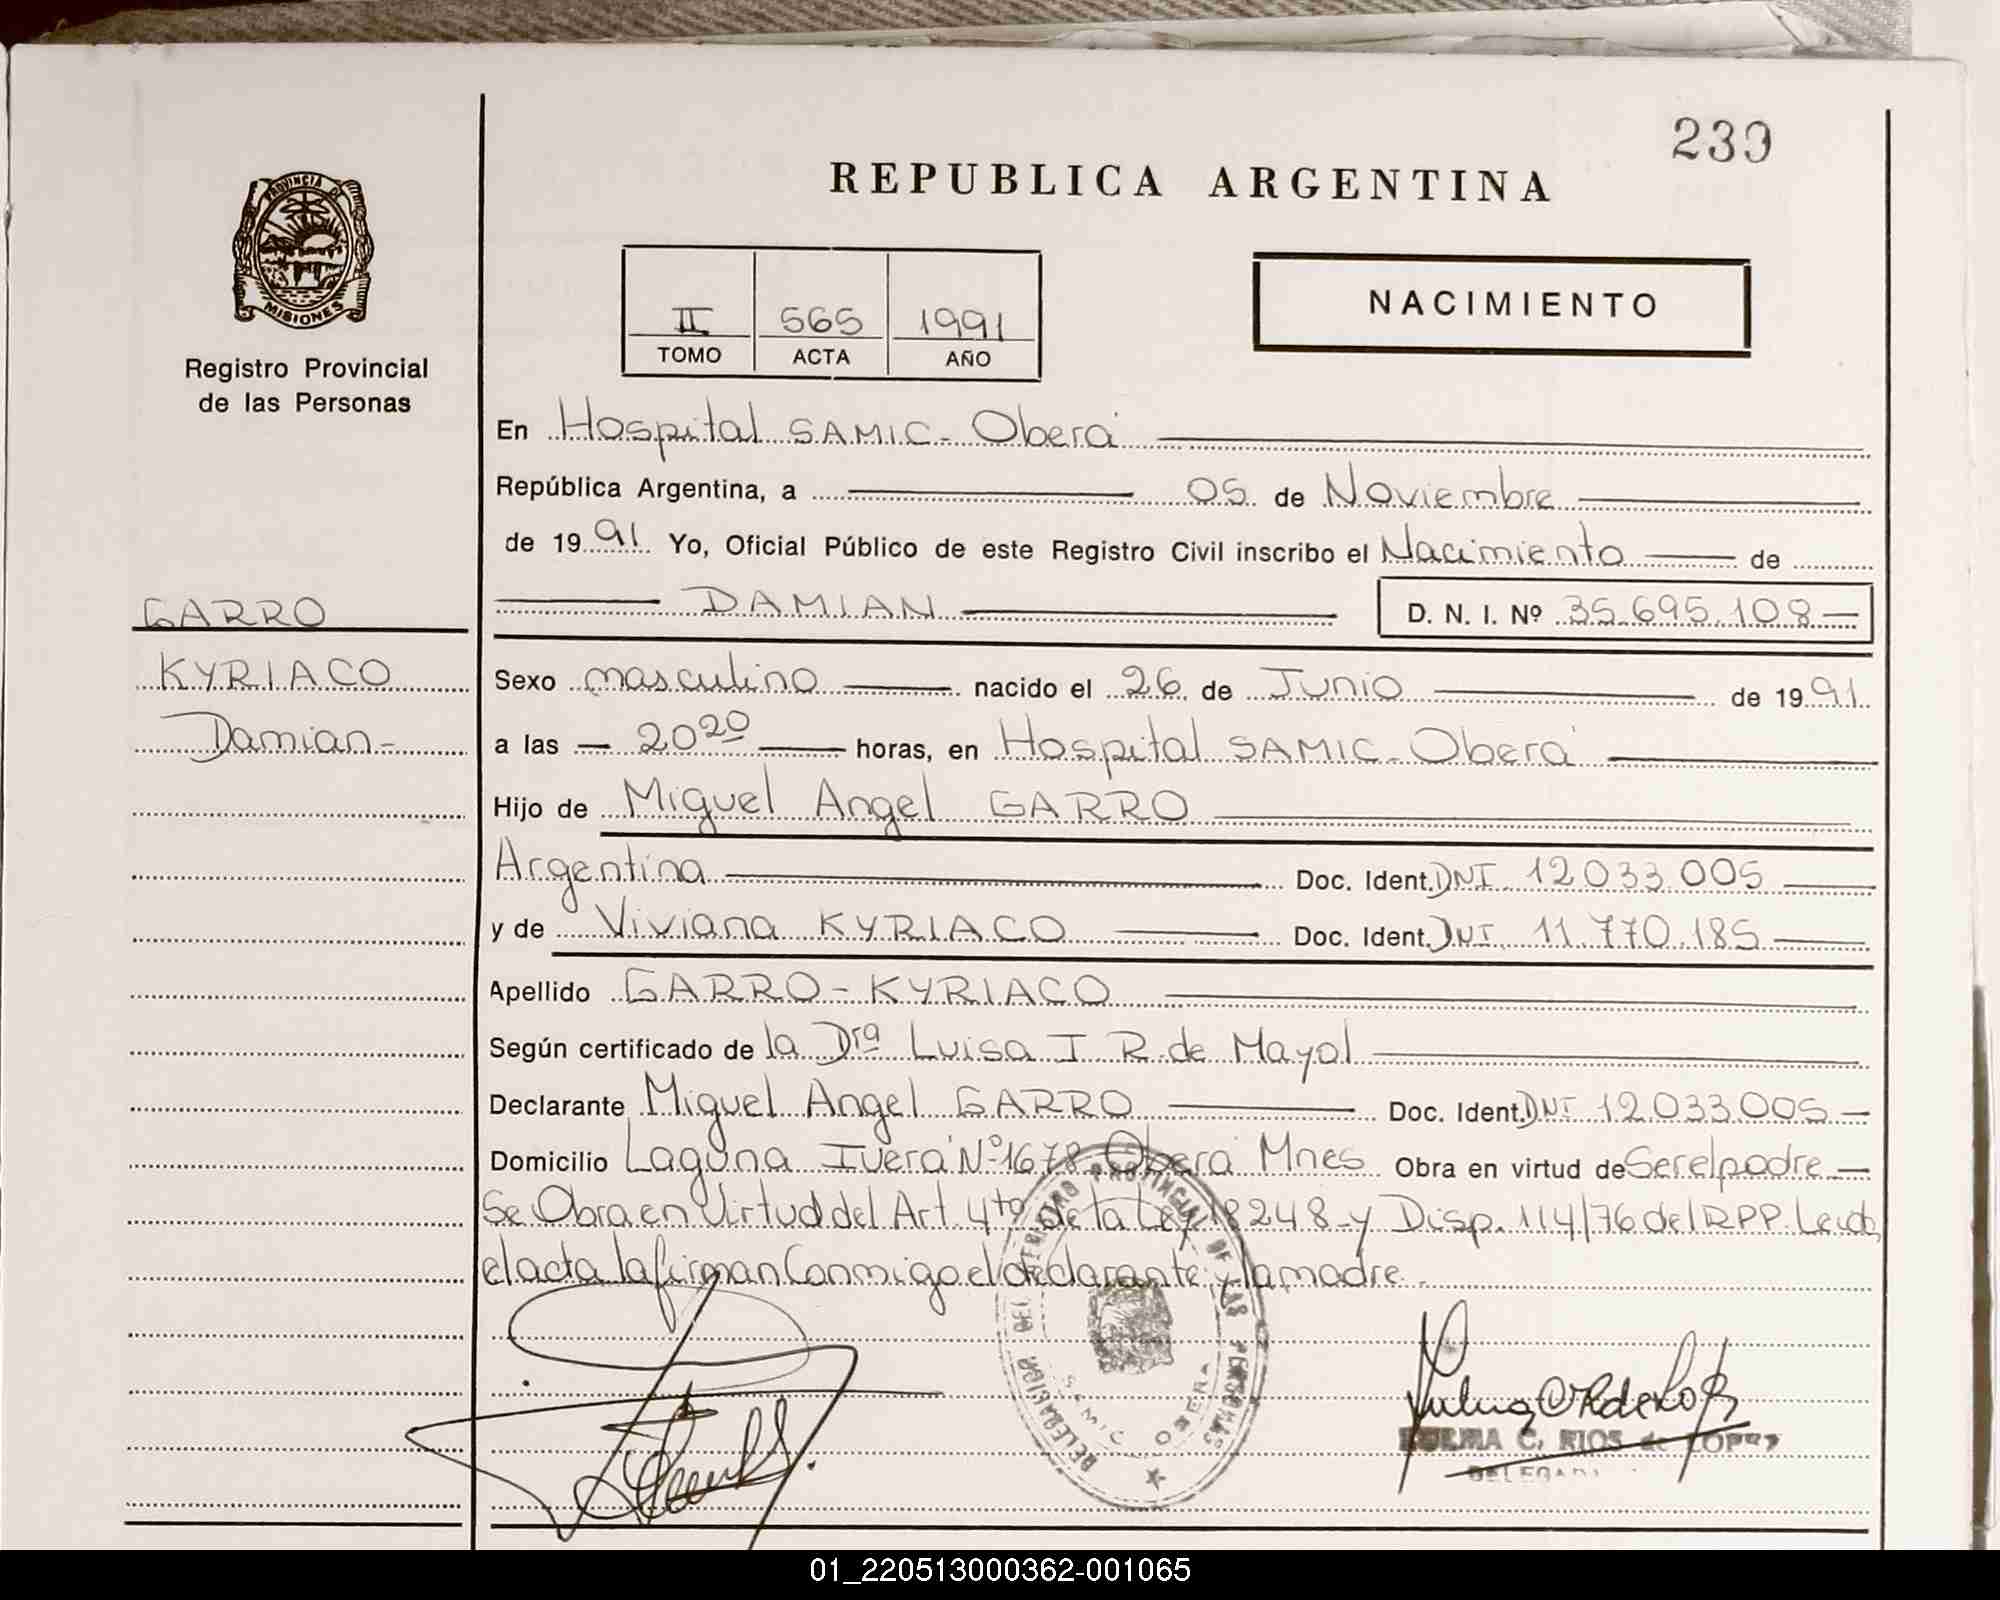 239
REPUBLICA ARGENTINA
PROVINCIA DE
MISIONES
Registro Provincial
de las Personas
II 565 1991
TOMO ACTA AÑO
NACIMIENTO
En Hospital SAMIC - Oberá
República Argentina, a 05 de Noviembre
de 1991 Yo, Oficial Público de este Registro Civil inscribo el Nacimiento de
DAMIAN D. N. I. Nº 35.695.108
GARRO
KYRIACO
Damian -
Sexo masculino nacido el 26 de Junio de 1991
a las 20 20 horas, en Hospital SAMIC - Oberá
Hijo de Miguel Angel GARRO
Argentina Doc. Ident. DNI 12.033.005
y de Viviana KYRIACO Doc. Ident. DNI 11.770.185
Apellido GARRO - KYRIACO
Según certificado de la Dra Luisa I R. de Mayol
Declarante Miguel Angel GARRO Doc. Ident. DNI 12.033.005
Domicilio Laguna Iverá Nº 1678 Oberá Mnes Obra en virtud de Ser el padre
Se Obra en Virtud del Art. 4to de la Ley 18248 y Disp. 114/76 del RPP. Leida
el acta la firman Conmigo el declarante y la madre.
DELEGACION DEL REGISTRO PROVINCIAL DE LAS PERSONAS
SAMIC OBERA
C. RIOS de LOPEZ
DELEGADA
01_220513000362-001065